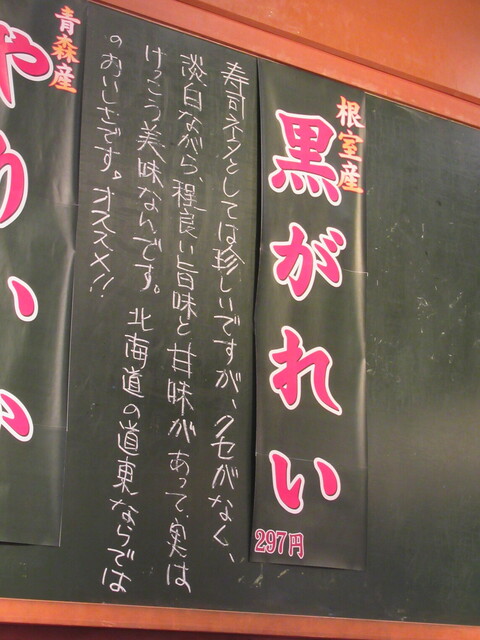 根室産
黒がれい
297円
寿司ネタとしては珍しいですが、クセがなく、
淡白ながら、程良い旨味と甘味があって、実は
けっこう美味なんです。北海道の道東ならでは
のおいしさです。オススメ!!
青森産
やりいか